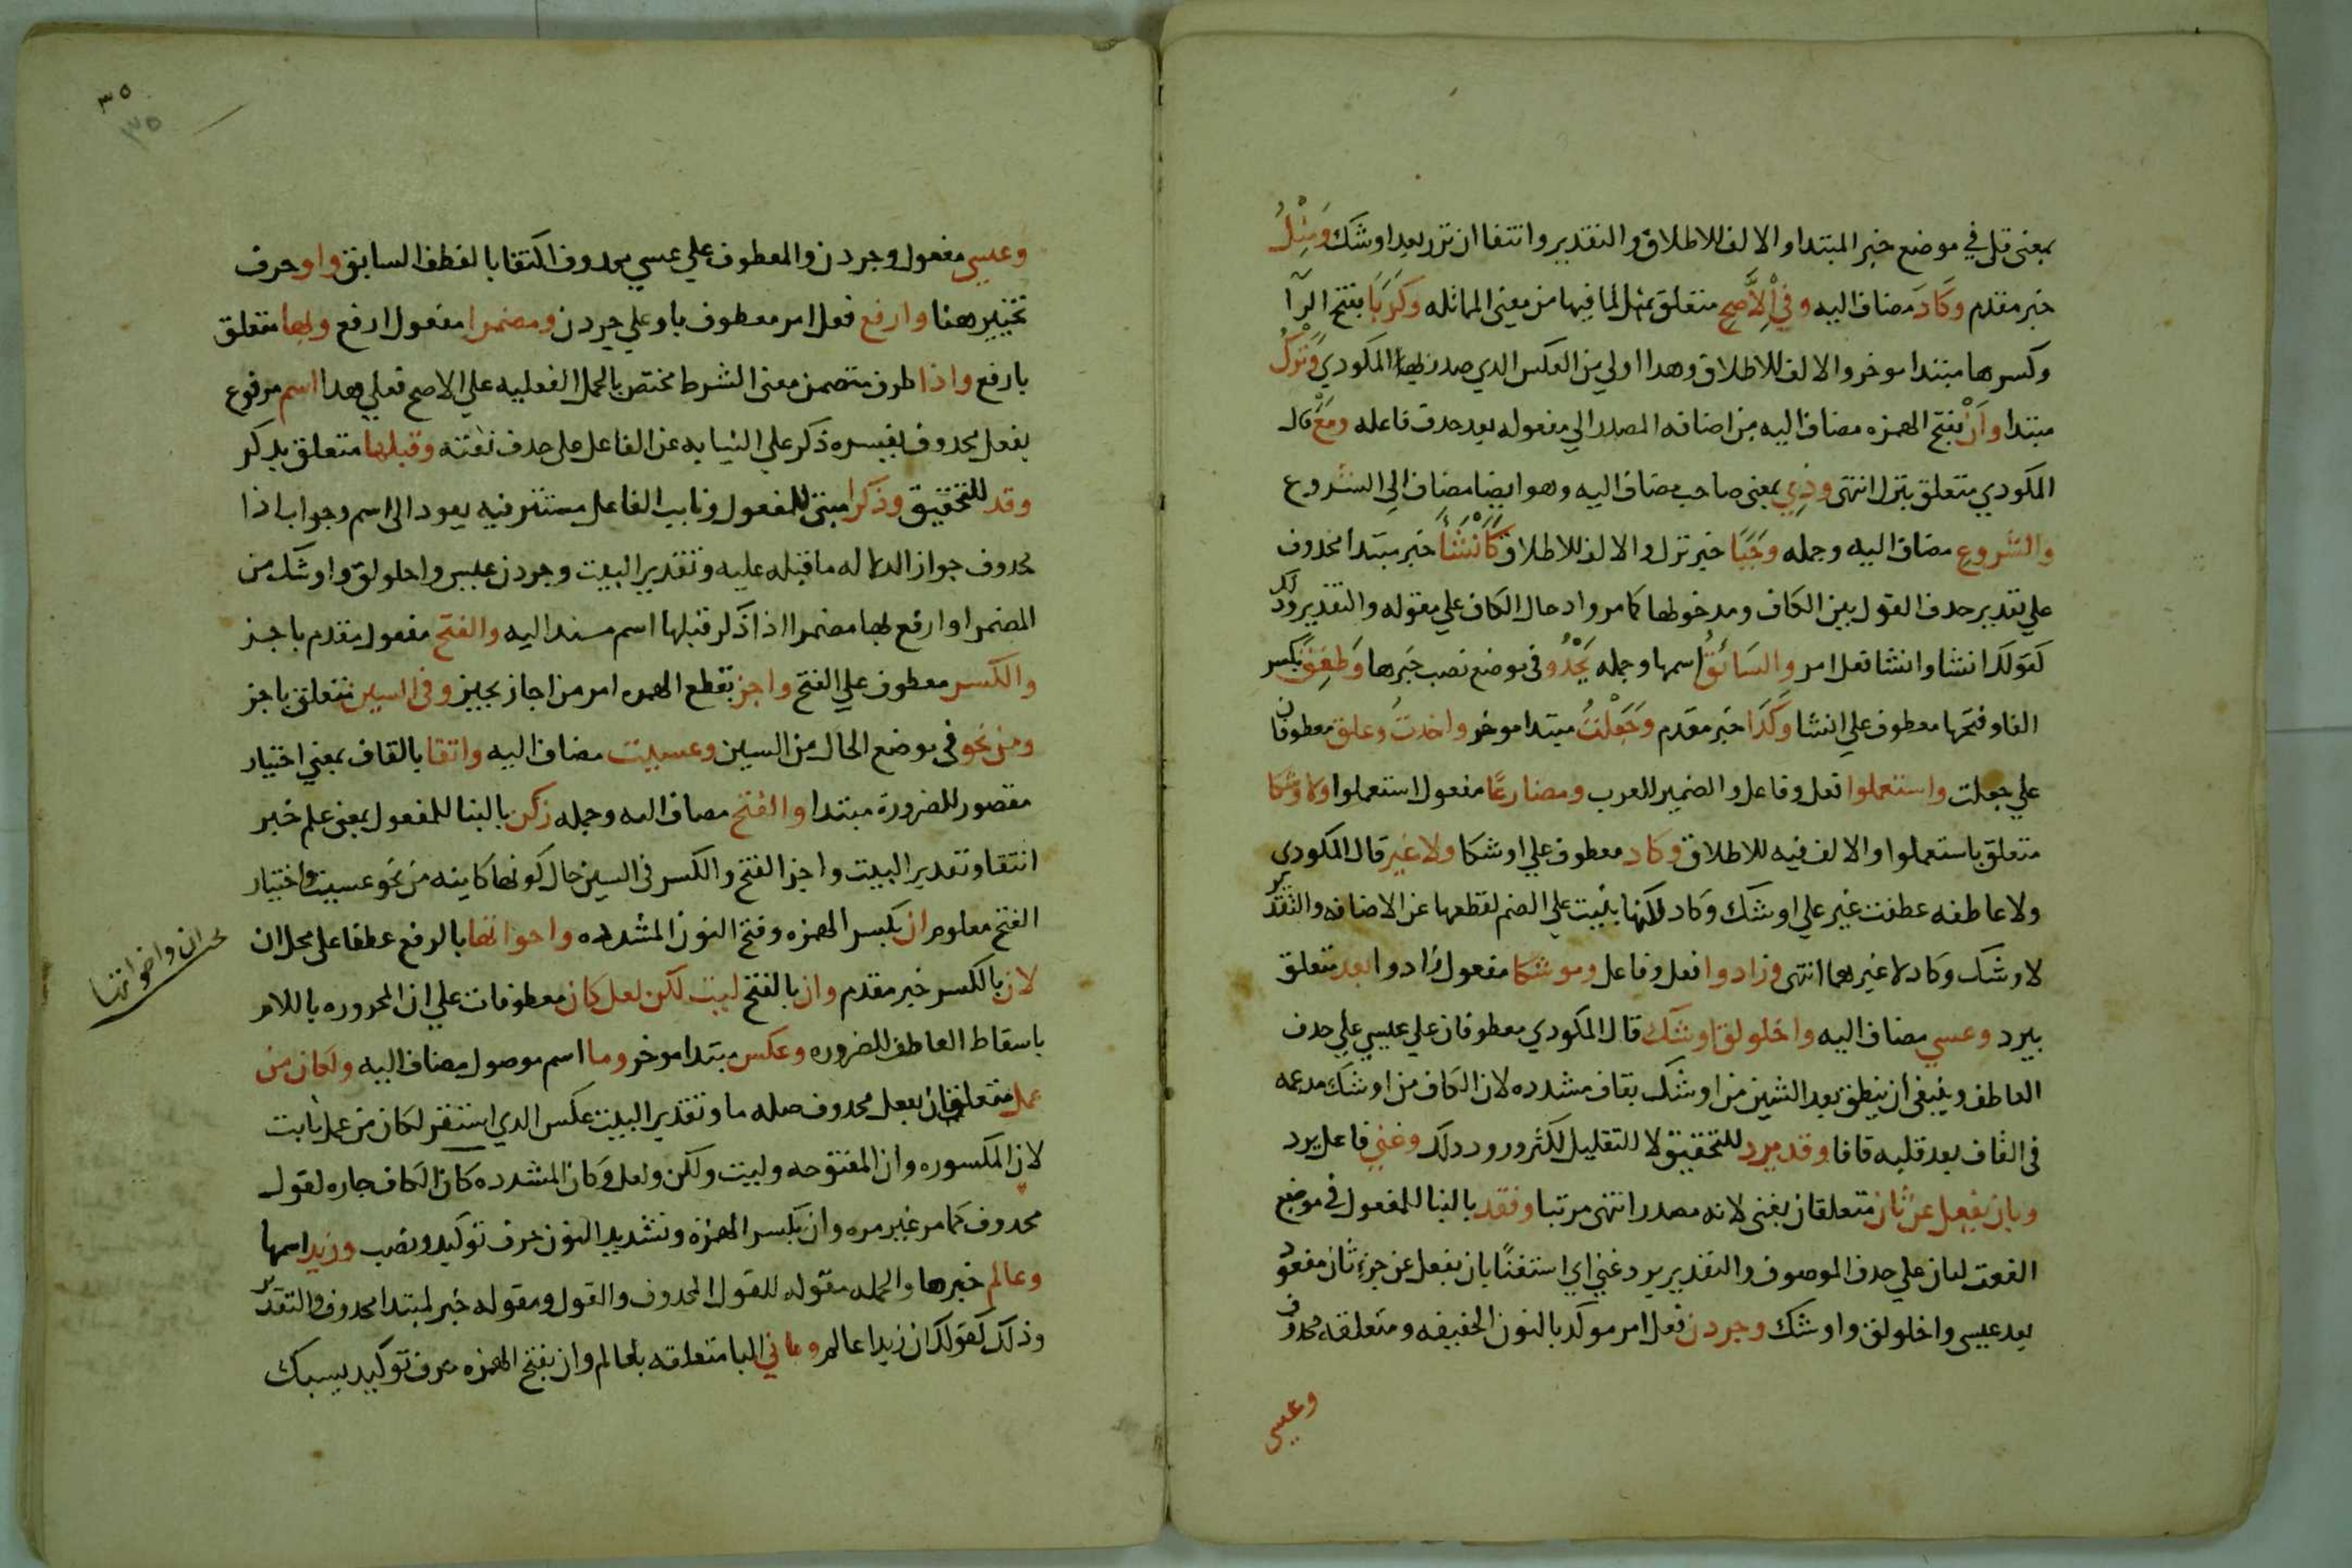 بمعنى قل في موضع خبر المبتدا والالف للاطلاق والتقدير وانتفا ان نزر بعد اوشك ومثل
خبر مقدم وكاد مضاف اليه وفي الاصح متعلق بمثل لما فيها من معنى المماثله وكربا بفتح الرا
وكسرها مبتدا موخر والالف للاطلاق وهدا اولي من العكس الدي صدر بها المكودي وترك
مبتدا وان بفتح الهمزه مضاف اليه من اضافه المصدر الي مفعوله بعد حدف فاعله ومع قال
المكودي متعلق بترك انتهى وذي بمعنى صاحب مضاف اليه وهو ايضا مضاف الى الشروع
والشروع مضاف اليه وجمله وجبا خبر ترك والالف للاطلاق كانشا خبر مبتدا محدوف
علي تقدير حدف القول بين الكاف ومدخولها كما مر وادخال الكاف علي مقوله والتقدير ودلك
كقولك انشا وانشا فعل امر والسائق اسمها وجمله يحدو في موضع نصب خبرها وطفق بكسر
الفا وفتحها معطوف علي انشا وكدا خبر مقدم وجعلت مبتدا موخر واخدت وعلق معطوفان
علي جعلت واستعملوا فعل وفاعل والضمير للعرب ومضارعا مفعول استعملوا ولاوشكا
متعلق باستعملوا والالف فيه للاطلاق وكاد معطوف علي اوشكا ولا غير قال المكودي
ولا عاطفه عطفت غير علي اوشك وكاد لكنها بنيت علي الضم لقطعها عن الاضافه والتقدير
لاوشك وكاد لا غيرهما انتهى وزادوا فعل وفاعل وموشكا مفعول زادوا بعد متعلق
بيرد وعسي مضاف اليه واخلولق اوشك قال المكودي معطوفان علي عسي علي حدف
العاطف وينبغي ان ينطق بعد الشين من اوشك بقاف مشدده لان الكاف من اوشك مدغمه
في القاف بعد قلبه قافا وقد يرد للتحقيق لا للتقليل لكثر ورود دلك وغني فاعل يرد
وبان يفعل عن ثان متعلقان بغنى لانه مصدر انتهى مرتبا وفقد بالبنا للمفعول في موضع
النعت لثان علي حدف الموصوف والتقدير يرد غني اي استغنا بان يفعل عن جزء ثان مفقود
بعد عسي واخلولق واوشك وجردن فعل امر موكد بالنون الخفيفه ومتعلقه محدوف
وعسي
٣٥
٣٥
وعسي مفعول وجردن والمعطوف علي عسي محدوف اكتفا بالفظ السابق واو حرف
تخيير هنا وارفع فعل امر معطوف باو علي جردن ومضمرا مفعول ارفع وبها متعلق
بارفع واذا ظرف متضمن معنى الشرط مختص بالجمل الفعليه علي الاصح فعلي هدا اسم مرفوع
بفعل محدوف يفسره ذكر علي النيابه عن الفاعل علي حدف نعته وقبلها متعلق بدكر
وقد للتحقيق وذكرا مبنى للمفعول ونايب الفاعل مستتر فيه يعود الى اسم وجواب اذا
محدوف جوازا لدلاله ما قبله عليه وتقدير البيت وجردن عسي واخلولق واوشك من
المضمر او ارفع بها مضمرا اذا ذكر قبلها اسم مسند اليه والفتح مفعول مقدم باجز
والكسر معطوف علي الفتح واجز بقطع الهمزه امر من اجاز يجيز وفي السين متعلق باجز
ومن نحو في موضع الحال من السين وعسيت مضاف اليه وانتقا بالقاف بمعني اختيار
مقصور للضرورة مبتدا والفتح مضاف اليه وجمله زكن بالبنا للمفعول بمعنى علم خبر
انتقا وتقدير البيت واجز الفتح والكسر في السين حال كونها كاينه من نحو عسيت واختيار
الفتح معلوم ان بكسر الهمزه وفتح النون المشدده واخواتها بالرفع عطفا علي محل ان
لان بالكسر خبر مقدم وان بالفتح ليت لكن لعل كان معطوفات علي ان المجروره باللام
باسقاط العاطف للضروره وعكس مبتدا موخر وما اسم موصول مضاف اليه ولكان من
عمل متعلقان بفعل محدوف صله ما وتقدير البيت عكس الدي استقر لكان من عمل ثابت
لان المكسوره وان المفتوحه وليت ولكن ولعل وكان المشدده كان الكاف جاره لقول
محدوف كما مر غير مره وان بكسر الهمزه وتشديد النون حرف توكيد ونصب وزيدا اسمها
وعالم خبرها والجمله مقوله للقول المحدوف والقول ومقوله خبر لمبتدا محدوف والتقدير
وذلك كقولك ان زيدا عالم وباني البا متعلقه بعالم وان بفتح الهمزه حرف توكيد يسبك
ان واخواتها